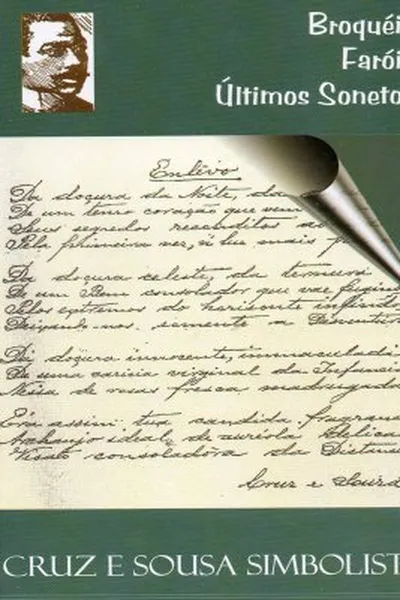 Broquéi
Farói
Últimos Soneto
Enlêvo
Da doçura da Noite, da
De um tenro coração que vem
Seus segredos recondítos
Pela primeira vez, à luz mais
Da doçura celeste, da ternura
De um Bem consolador que vae
Pelos extremos do horisonte infinit
Deixando-nos sómente a Desventur
Da doçura innocente, immaculad
De uma caricia virginal da Infancia
Nessa de rosas fresca madrugada
Era assim tua candida fragran
Archanjo ideal de auréola delica
Visão consoladôra da Distan
Cruz e Sousa
CRUZ E SOUSA SIMBOLIST